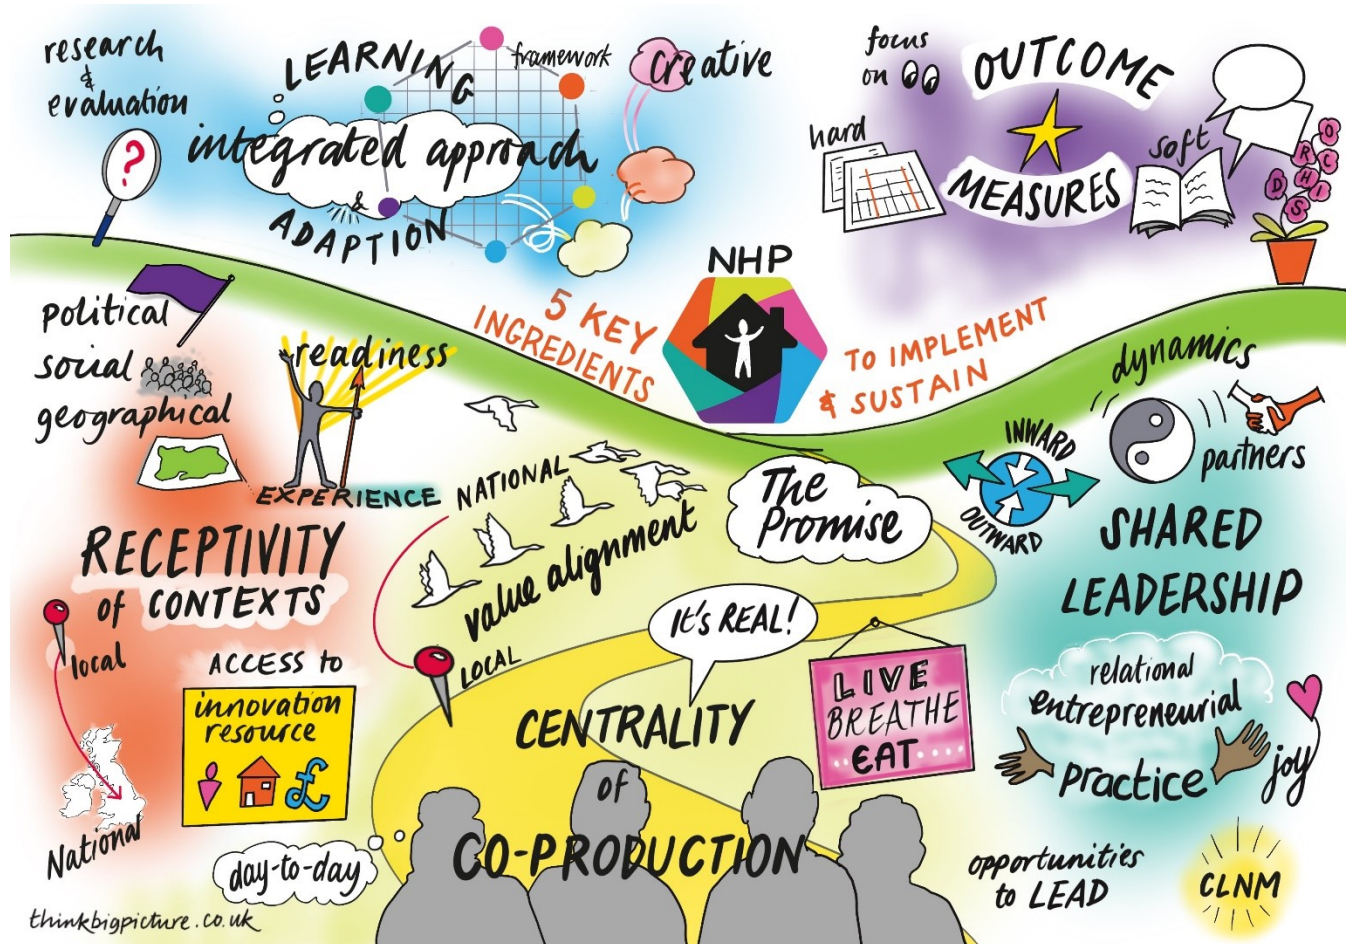 research
&
evaluation
?
LEARNING
framework
creative
integrated approach
&
ADAPTION
focus
on
OUTCOME
MEASURES
hard
soft
ORCHIDS
NHP
5 KEY
INGREDIENTS
TO IMPLEMENT
& SUSTAIN
political
social
geographical
readiness
EXPERIENCE
RECEPTIVITY
of CONTEXTS
local
National
ACCESS to
innovation
resource
£
day-to-day
NATIONAL
value alignment
LOCAL
The
Promise
It's REAL!
CENTRALITY
of
CO-PRODUCTION
LIVE
BREATHE
EAT....
dynamics
partners
INWARD
OUTWARD
SHARED
LEADERSHIP
relational
entrepreneurial
practice
joy
opportunities
to LEAD
CLNM
thinkbigpicture.co.uk